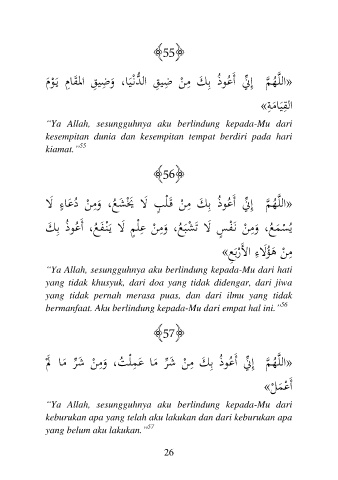 ﴿55﴾
«اللَّهُمَّ إِنِّي أَعُوذُ بِكَ مِنْ ضِيقِ الدُّنْيَا، وَضِيقِ المَقَامِ يَوْمَ
القِيَامَةِ»
“Ya Allah, sesungguhnya aku berlindung kepada-Mu dari
kesempitan dunia dan kesempitan tempat berdiri pada hari
kiamat.”55
﴿56﴾
«اللَّهُمَّ إِنِّي أَعُوذُ بِكَ مِنْ قَلْبٍ لَا يَخْشَعُ، وَمِنْ دُعَاءٍ لَا
يُسْمَعُ، وَمِنْ نَفْسٍ لَا تَشْبَعُ، وَمِنْ عِلْمٍ لَا يَنْفَعُ، أَعُوذُ بِكَ
مِنْ هَؤُلَاءِ الأَرْبَعِ»
“Ya Allah, sesungguhnya aku berlindung kepada-Mu dari hati
yang tidak khusyuk, dari doa yang tidak didengar, dari jiwa
yang tidak pernah merasa puas, dan dari ilmu yang tidak
bermanfaat. Aku berlindung kepada-Mu dari empat hal ini.”56
﴿57﴾
«اللَّهُمَّ إِنِّي أَعُوذُ بِكَ مِنْ شَرِّ مَا عَمِلْتُ، وَمِنْ شَرِّ مَا لَمْ
أَعْمَلْ»
“Ya Allah, sesungguhnya aku berlindung kepada-Mu dari
keburukan apa yang telah aku lakukan dan dari keburukan apa
yang belum aku lakukan.”57
26